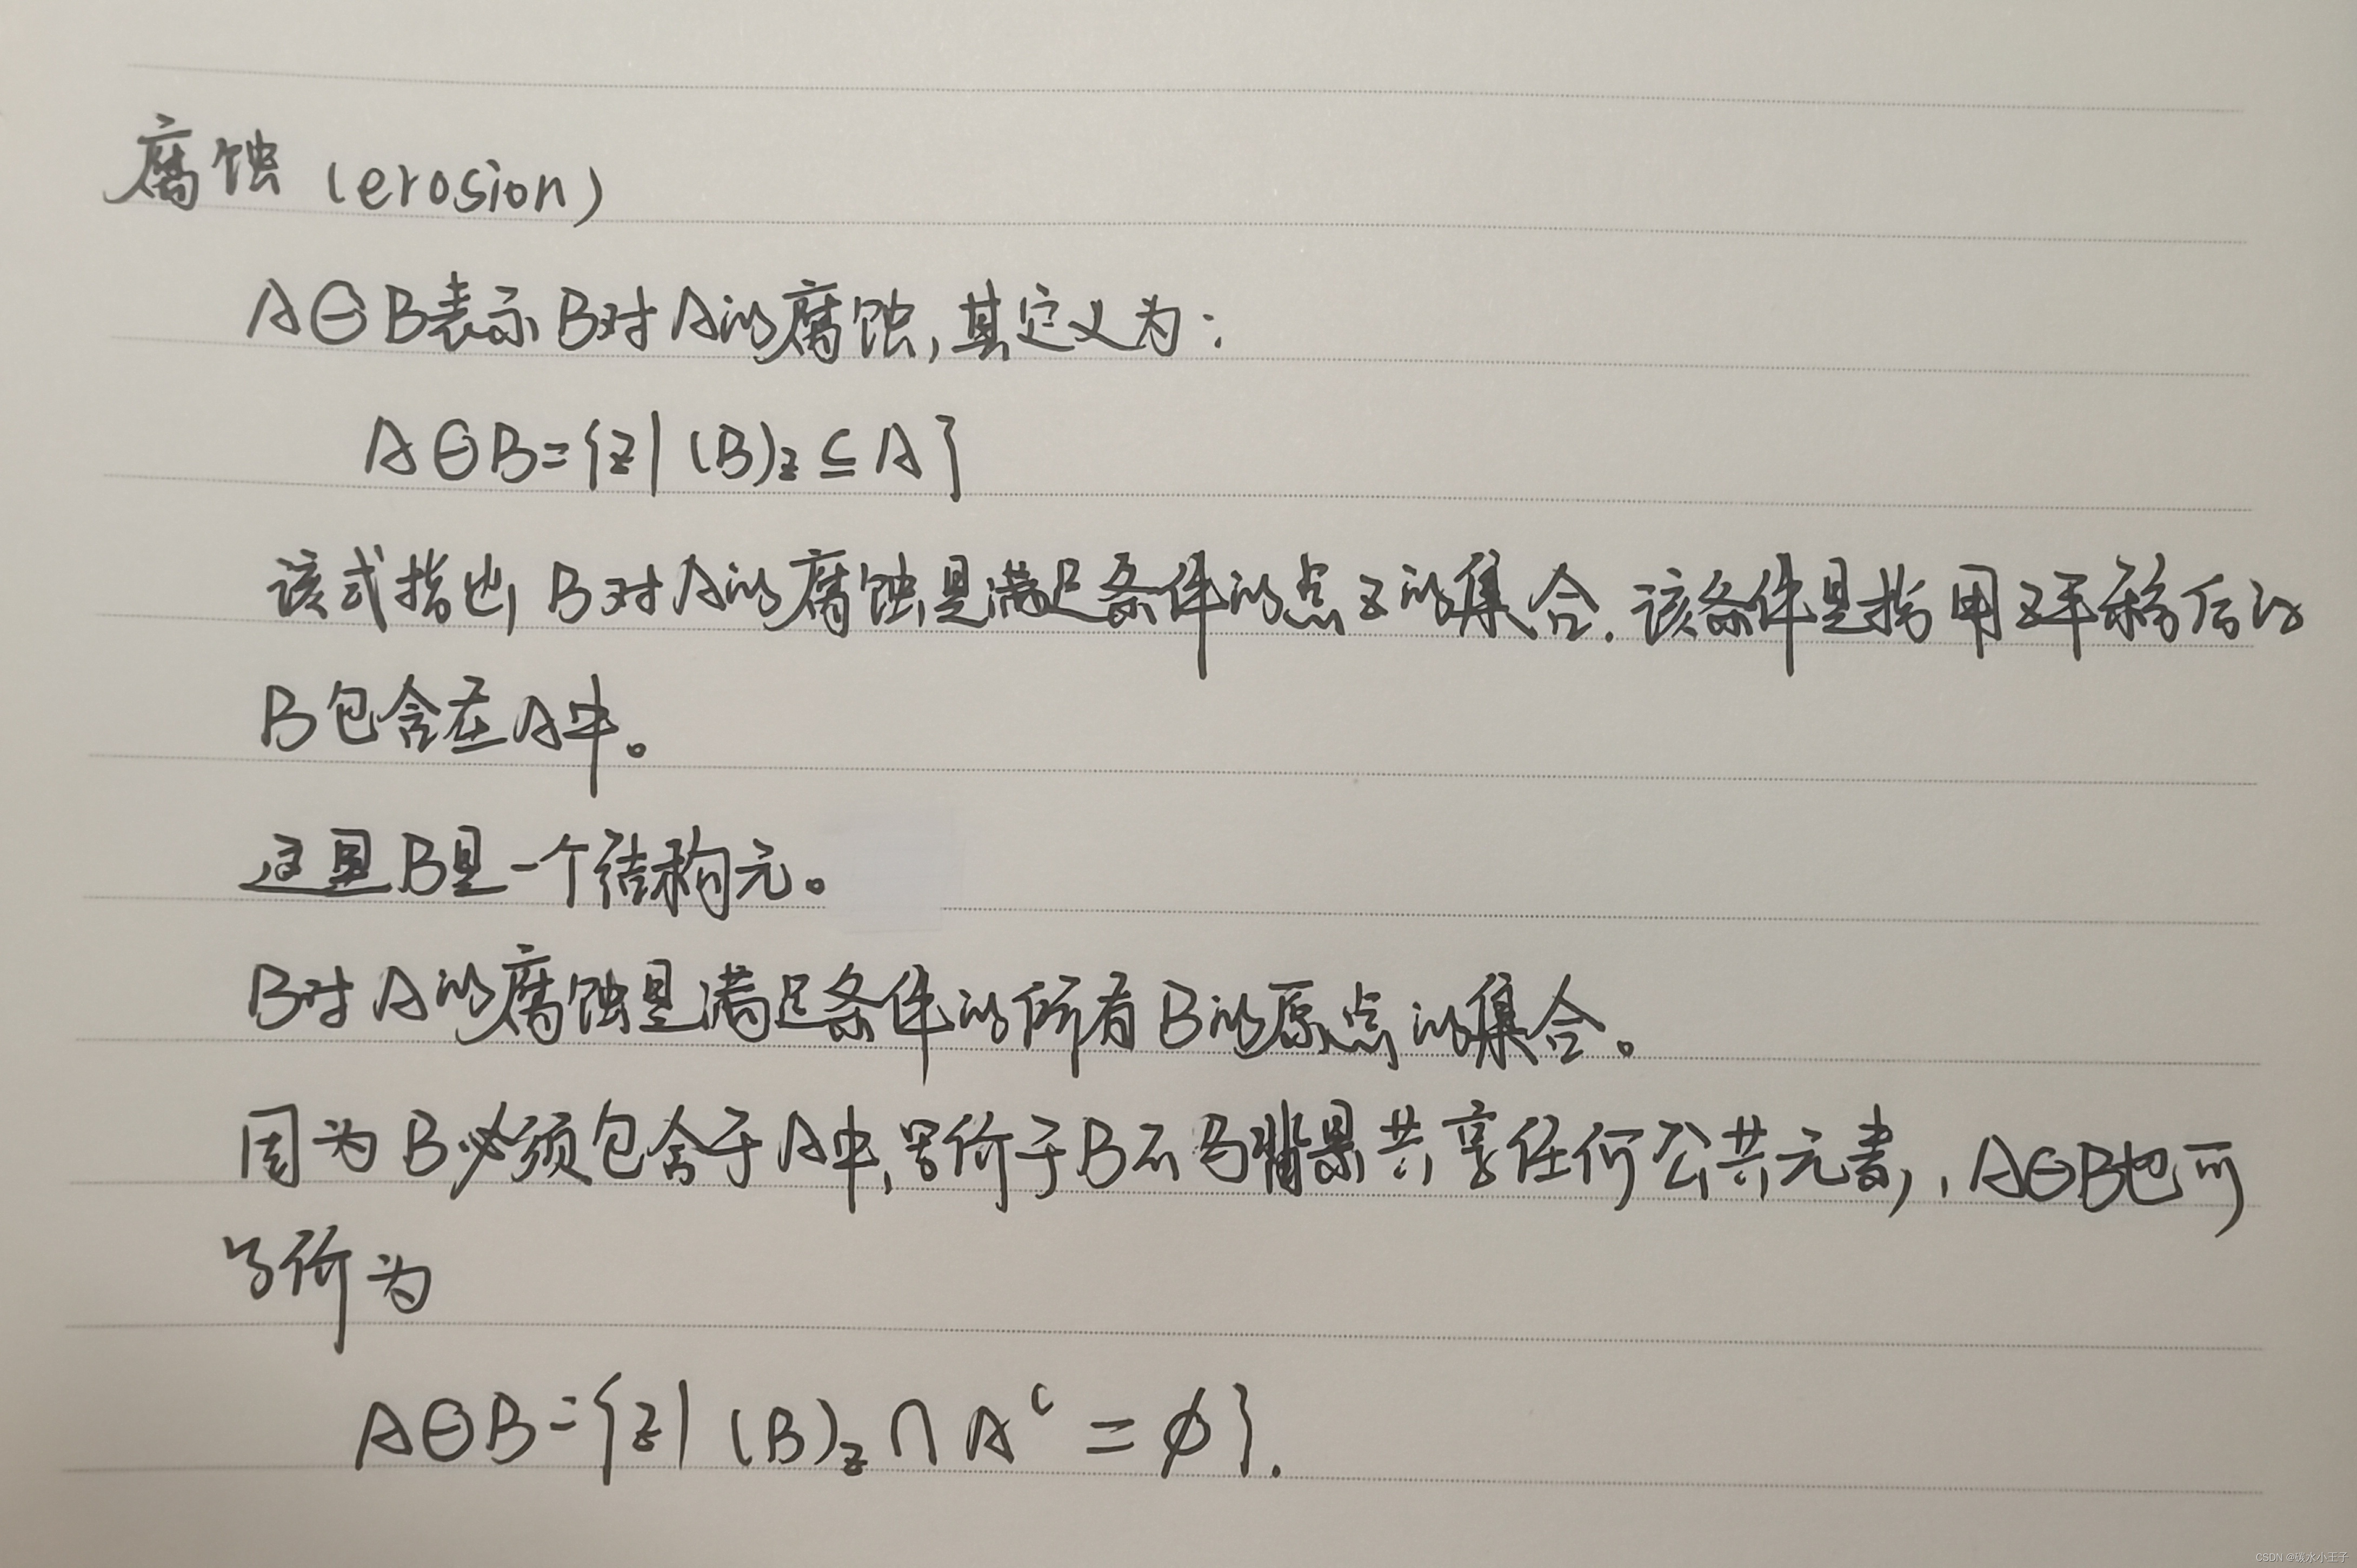 腐蚀 (erosion)
A⊖B表示B对A的腐蚀,其定义为:
A⊖B={z| (B)z⊆A}
该式指出,B对A的腐蚀是满足条件的点z的集合.该条件是指用z平移后的
B包含在A中。
这里B是一个结构元。
B对A的腐蚀是满足条件的所有B的原点的集合。
因为B必须包含于A中,等价于B不与背景共享任何公共元素,,A⊖B也可
等价为
A⊖B={z| (B)z∩Aᶜ=∅}.
CSDN @碳水小王子